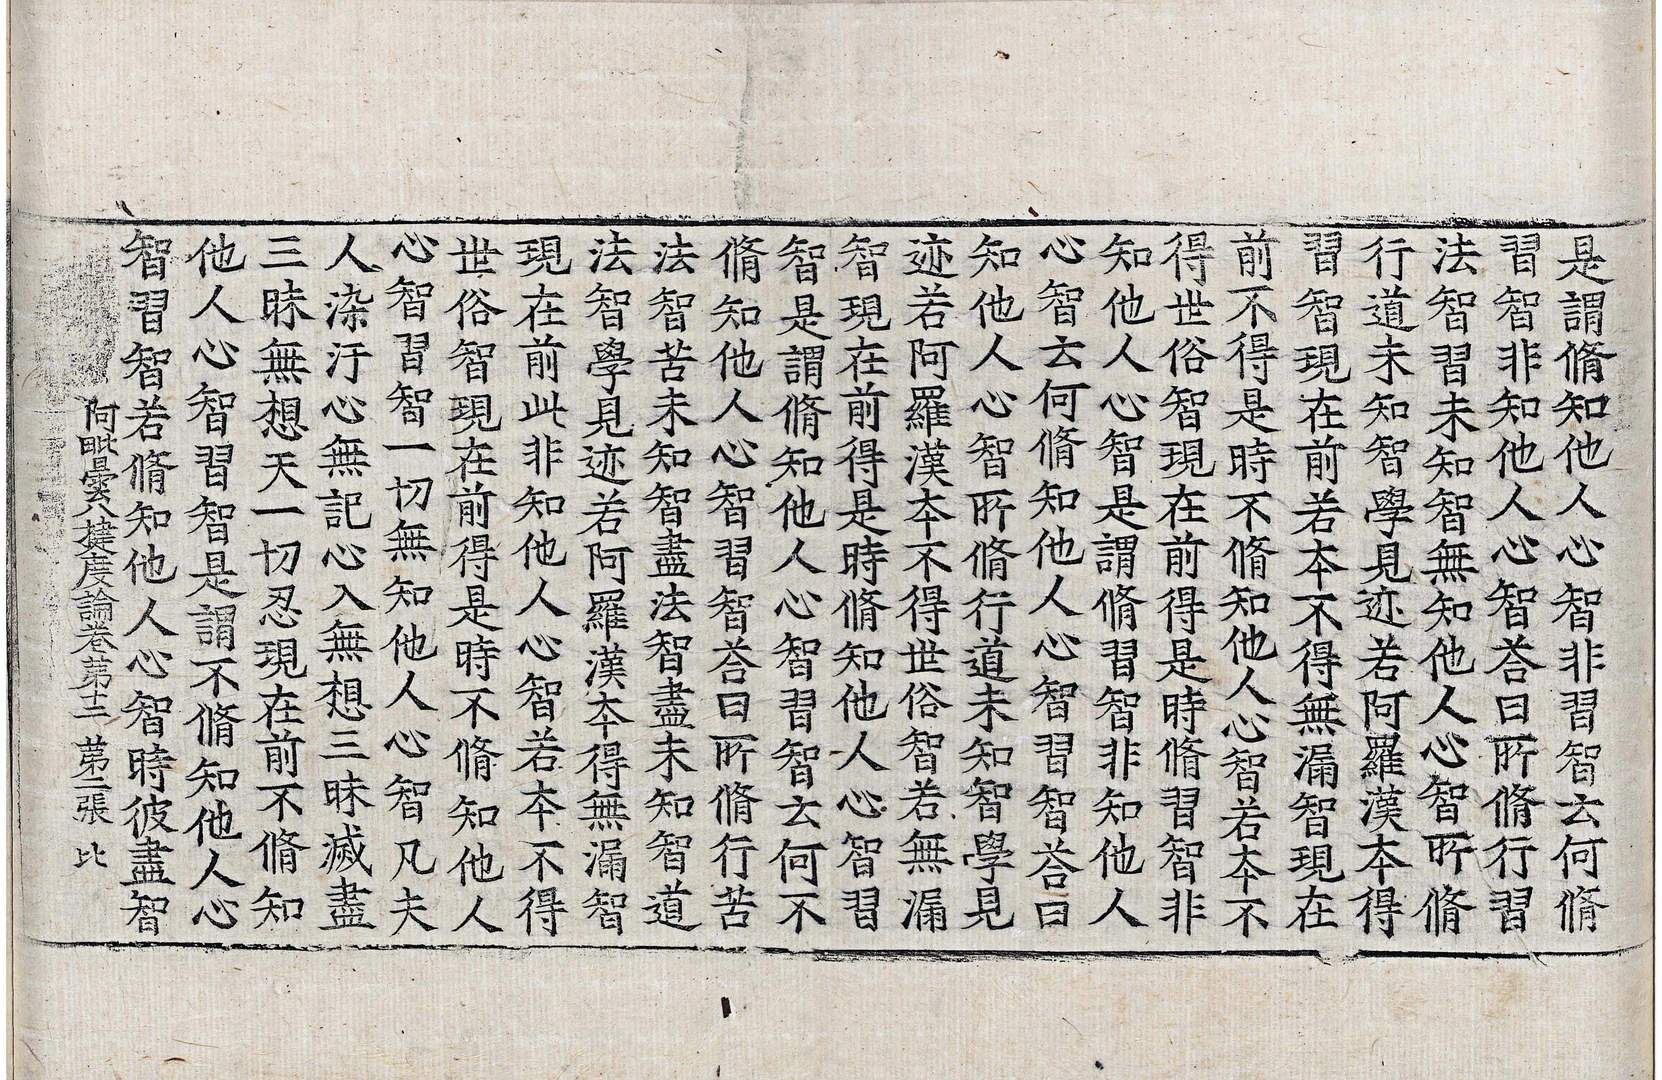 是謂脩知他人心智非習智云何脩
習智非知他人心智荅曰所脩行習
法智習未知智無知他人心智所脩
行道未知智學見迹若阿羅漢本得
習智現在前若本不得無漏智現在
前不得是時不脩知他人心智若本不
得世俗智現在前得是時脩習智非
知他人心智是謂脩習智非知他人
心智云何脩知他人心智習智荅曰
知他人心智所脩行道未知智學見
迹若阿羅漢本不得世俗智若無漏
智現在前得是時脩知他人心智習
智是謂脩知他人心智習智云何不
脩知他人心智習智荅曰所脩行苦
法智苦未知智盡法智盡未知智道
法智學見迹若阿羅漢本得無漏智
現在前此非知他人心智若本不得
世俗智現在前得是時不脩知他人
心智習智一切無知他人心智凡夫
人染汙心無記心入無想三昧滅盡
三昧無想天一切忍現在前不脩知
他人心智習智是謂不脩知他人心
智習智若脩知他人心智時彼盡智
阿毗曇八揵度論卷第十二 第二張 比